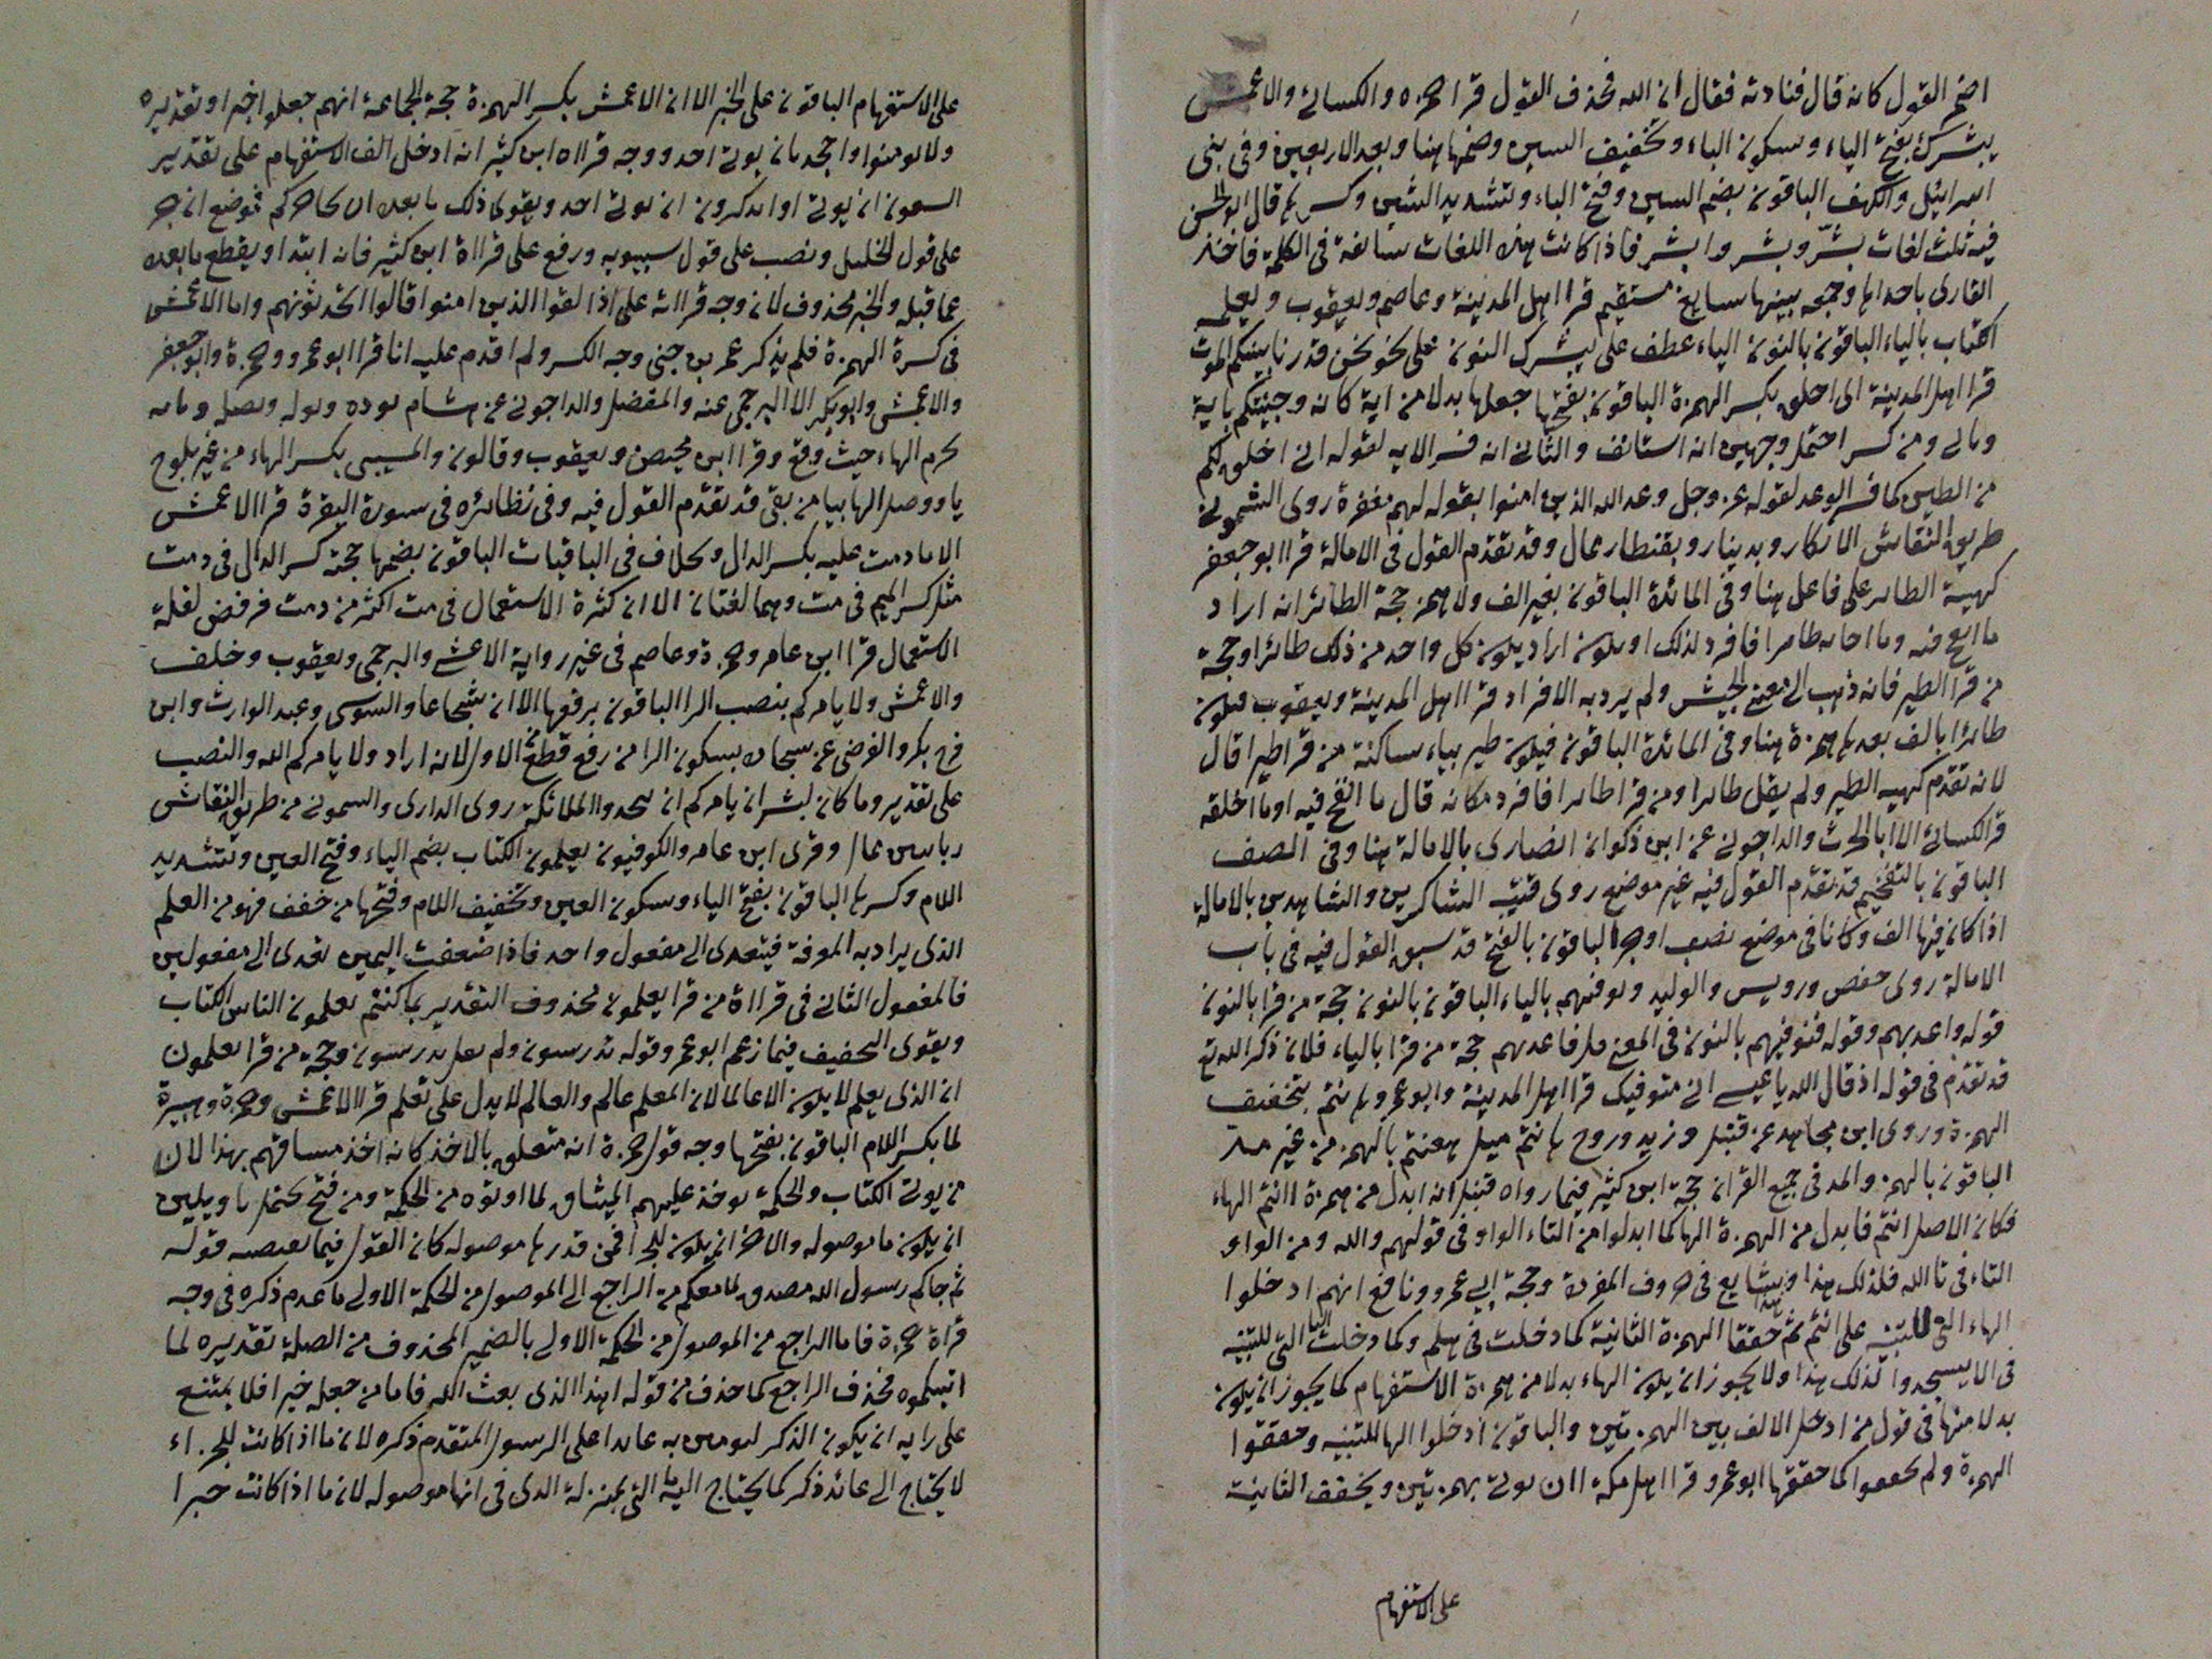 اضمر القول كانه قال فنادته فقال ان الله فحذف القول قرا حمزه والكسائي والاعمش
يبشرك بفتح الياء وسكون الباء وتخفيف السين وضمها هنا وبعد الاربعين وفي بني
اسرائيل والكهف الباقون بضم السين وفتح الباء وتشديد الشين وكسرها قال ابو الحسن
فيه ثلث لغات بشّر وبشر وابشر فاذا كانت هذه اللغات سايغة في الكلمة فاخذ
القارى باحداها وجمعه بينها سايغ مستقيم قرا اهل المدينة وعاصم ويعقوب ويعلمه
الكتاب بالياء الباقون بالنون الياء عطف على يبشرك النون على نحو نحن قدرنا بينكم الموت
قرا اهل المدينة اني اخلق بكسر الهمزة الباقون بفتحها جعلها بدلا من اية كانه وجيتكم باية
وباني ومن كسر احتمل وجهين انه استانف والثاني انه فسر الايه لقوله اني اخلق لكم
من الطين كما فسر الوعد لقوله عز وجل وعد الله الذين امنوا بقوله لهم مغفرة روى الشموني
طريق النقاش الانكار وبدينار وبقنطار ممال وقد تقدم القول في الامالة قرا ابو جعفر
كهيئة الطائر على فاعل هنا وفي المائدة الباقون بغير الف ولا همز حجة الطائر انه اراد
ما انفخ فيه وما طائرا فافرد لذلك او يكون اراد يكون كل واحد من ذلك طائرا وحجة
من قرا الطير فانه ذهب الى معنى الجيش ولم يرد به الافراد قرا اهل المدينة ويعقوب فيكون
طائرا بالف بعدها همزة هنا وفي المائدة الباقون فيكون طير بياء ساكنة من قرا طيرا قال
لانه تقدم كهيه الطير ولم يقل طائرا ومن قرا طائرا فافرد مكانه قال ما انفخ فيه او ما اخلقه
قرا الكسائي الا ابا الحرث والداجوني عن ابن ذكوان انصارى بالامالة هنا وفي الصف
الباقون بالتفخيم قد تقدم القول فيه غير موضع روى قتيبة الشاكرين والشاهدين بالامالة
اذا كان فيها الف وكانا في موضع نصب او جر الباقون بالفتح قد سبق القول فيه في باب
الامالة روى حفص ورويس والوليد ويوفيهم بالياء الباقون بالنون حجة من قرا بالنون
قوله واعدبهم وقوله فنوفيهم بالنون في المعنى مثل فاعدبهم حجة من قرا بالياء فلان ذكر الله تع
قد تقدم في قوله اذ قال الله يا عيسى اني متوفيك قرا اهل المدينة وابو عمرو ها نتم بتخفيف
الهمزة وروى ابن مجاهد عن قنبل وزيد وروح ها نتم ميل هعنتم بالهمز من غير مد
الباقون بالهمز والمد في جميع القران حجة ابن كثير فيما رواه قنبل انه ابدل من همزة اانتم الهاء
فكان الاصل اانتم فابدل من الهمزة الها كما ابدلوا من التاء الواو في قولهم والله ومن الواو
التاء في تا الله فلذلك هذا وشايع في حروف المفردة وحجة ابي عمرو ونافع انهم ادخلوا
الهاء التي للتنبيه على انتم ثم حققا الهمزة الثانية كما دخلت في هلم وكما دخلت اليا التي للتنبيه
في الا يسجدوا لذلك هذا ولا يجوز ان يكون الهاء بدلا من همزة الاستفهام كما يجوز ان يكون
بدلا منها في قول من ادخل الالف بين الهمزتين والباقون ادخلوا الها للتنبيه وحققوا
الهمزة ولم يخففوا كما خففها ابو عمرو قرا اهل مكة اان يوتى بهمزتين ويخفف الثانية
على الاستفهام
على الاستفهام الباقون على الخبر الا ان الاعمش بكسر الهمزة حجة الجماعة انهم جعلوا خبرا وتقديره
ولا تومنوا واجحد بان يوتى احد ووجه قراه ابن كثير انه ادخل الف الاستفهام على تقدير
ان يوتى او اتذكرون ان يوتى احد ويقوى ذلك ما بعده ان يحاجوكم فوضع ان جر
على قول الخليل ونصب على قول سيبويه ورفع على قراة ابن كثير فانه ابتدا ويقطع ما بعده
عما قبله والخبر محذوف لان وجه قراته على اذا لقوا الذين امنوا قالوا اتحدثونهم واما الاعمش
في كسرة الهمزة فلم يذكر عمر بن جني وجه الكسر ولم اقدم عليه انا قرا ابو عمرو وحمزة وابو جعفر
والاعمش وابو بكر الا البرجمي عنه والمفضل والداجوني عن هشام يوده ونوله ونصله
بجزم الهاء حيث وقع وقرا ابن محيصن ويعقوب وقالون والمسيبي بكسر الهاء من غير بلوغ
يا ووصل الها بيا من بقى قد تقدم القول فيه وفي نظائره في سورة البقرة قرا الاعمش
الا ما دمت عليه بكسر الدال وخلاف في الباقيات الباقون بضمها حجة كسر الدال في دمت
مثل كسر الميم في مت وهما لغتان الا ان كثرة الاستعمال في مت اكثر من دمت فرفض لقلة
الاستعمال قرا ابن عامر وحمزة وعاصم في غير رواية الاعشى والبرجمي ويعقوب وخلف
والاعمش ولا يامركم بنصب الرا الباقون برفعها الا ان شجاعا والسوسى وعبد الوارث وابن
فرح بكر والفرضى عن سبحان بسكون الرا من رفع قطع الاول لانه اراد ولا يامركم الله والنصب
على تقدير وما كان لبشر ان يامركم ان تتخدوا الملائكة روى الدارى والسموني من طريق النقاش
ربانيين ممال وقرى ابن عامر والكوفيون يعلمون الكتاب بضم الياء وفتح العين وتشديد
اللام وكسرها الباقون بفتح الياء وسكون العين وتخفيف اللام وفتحها من خفف فهو من العلم
الذى يراد به المعرفة فيتعدى الى مفعول واحد فاذا ضعفت اليمين تعدى الى مفعولين
فالمفعول الثاني في قراة من قرا يعلمون محذوف التقدير بما كنتم تعلمون الناس الكتاب
ويقوى التخفيف فيما زعم ابو عمرو قوله تدرسون ولم يقل يدرسون وحجة من قرا تعلمون
ان الذى يعلم لا يكون الا عالما لان المعلم عالم والعالم لا يدل على تعلم قرا الاعمش وحمزة وهبيرة
لما بكسر اللام الباقون بفتحها وجه قول حمزة انه متعلق بالاخذ كانه اخذ ميثاقهم بهذا لان
من يوتى الكتاب والحكمة يوخذ عليهم الميثاق لما اوتوه من الحكمة ومن فتح يحتمل تاويلين
ان يكون ما موصوله والاخر ان يكون للجزا فمن قدرها موصوله كان القول فيما يقتضيه قوله
ثم جاكم رسول الله مصدق لما معكم من الراجع الى الموصول من الحكمة الاولى ما تقدم ذكره في وجه
قراة حمزة فاما الراجع من الموصول من الحكمة الاولى بالضمير المحذوف من الصلة تقديره لما
اتيتكموه فحذف الراجع كما حذف من قوله اهذا الذى بعث الله فاما من جعله خبرا فلا يمتنع
على رايه ان يكون الذكر لتومنن به عائدا على الرسول المتقدم ذكره لان ما اذا كانت للجزاء
لا يحتاج الى عائد ذكر كما يحتاج اليه التي بمنزلة الذى في انها موصوله لان ما اذا كانت خبرا